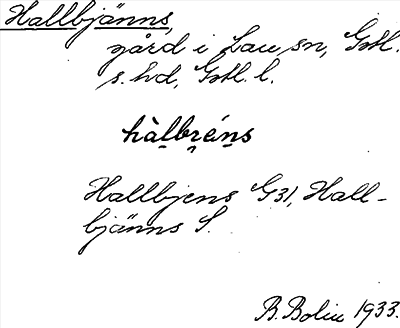 Hallbjänns,
gård i Lau sn, Gotl.
s. hd, Gotl. l.
hàlbréns
Hallbjens G31, Hall-
bjänns S.
B. Bolin 1933.